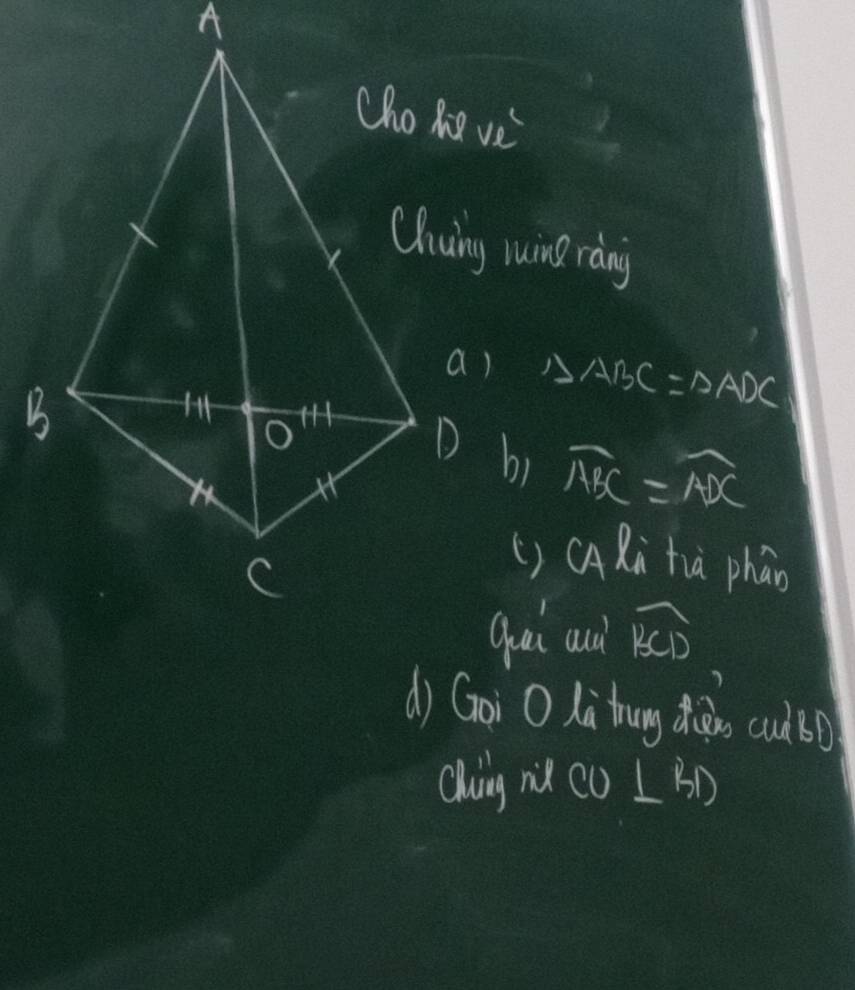 A
Cho hìn vẽ
Chứng minh rằng
B
O
D
C
a) ΔABC = ΔADC
b) ABC = ADC
c) CA là tia phân
giác của BCD
d) Gọi O là trung điểm của BD.
Chứng mih CO ⊥ BD